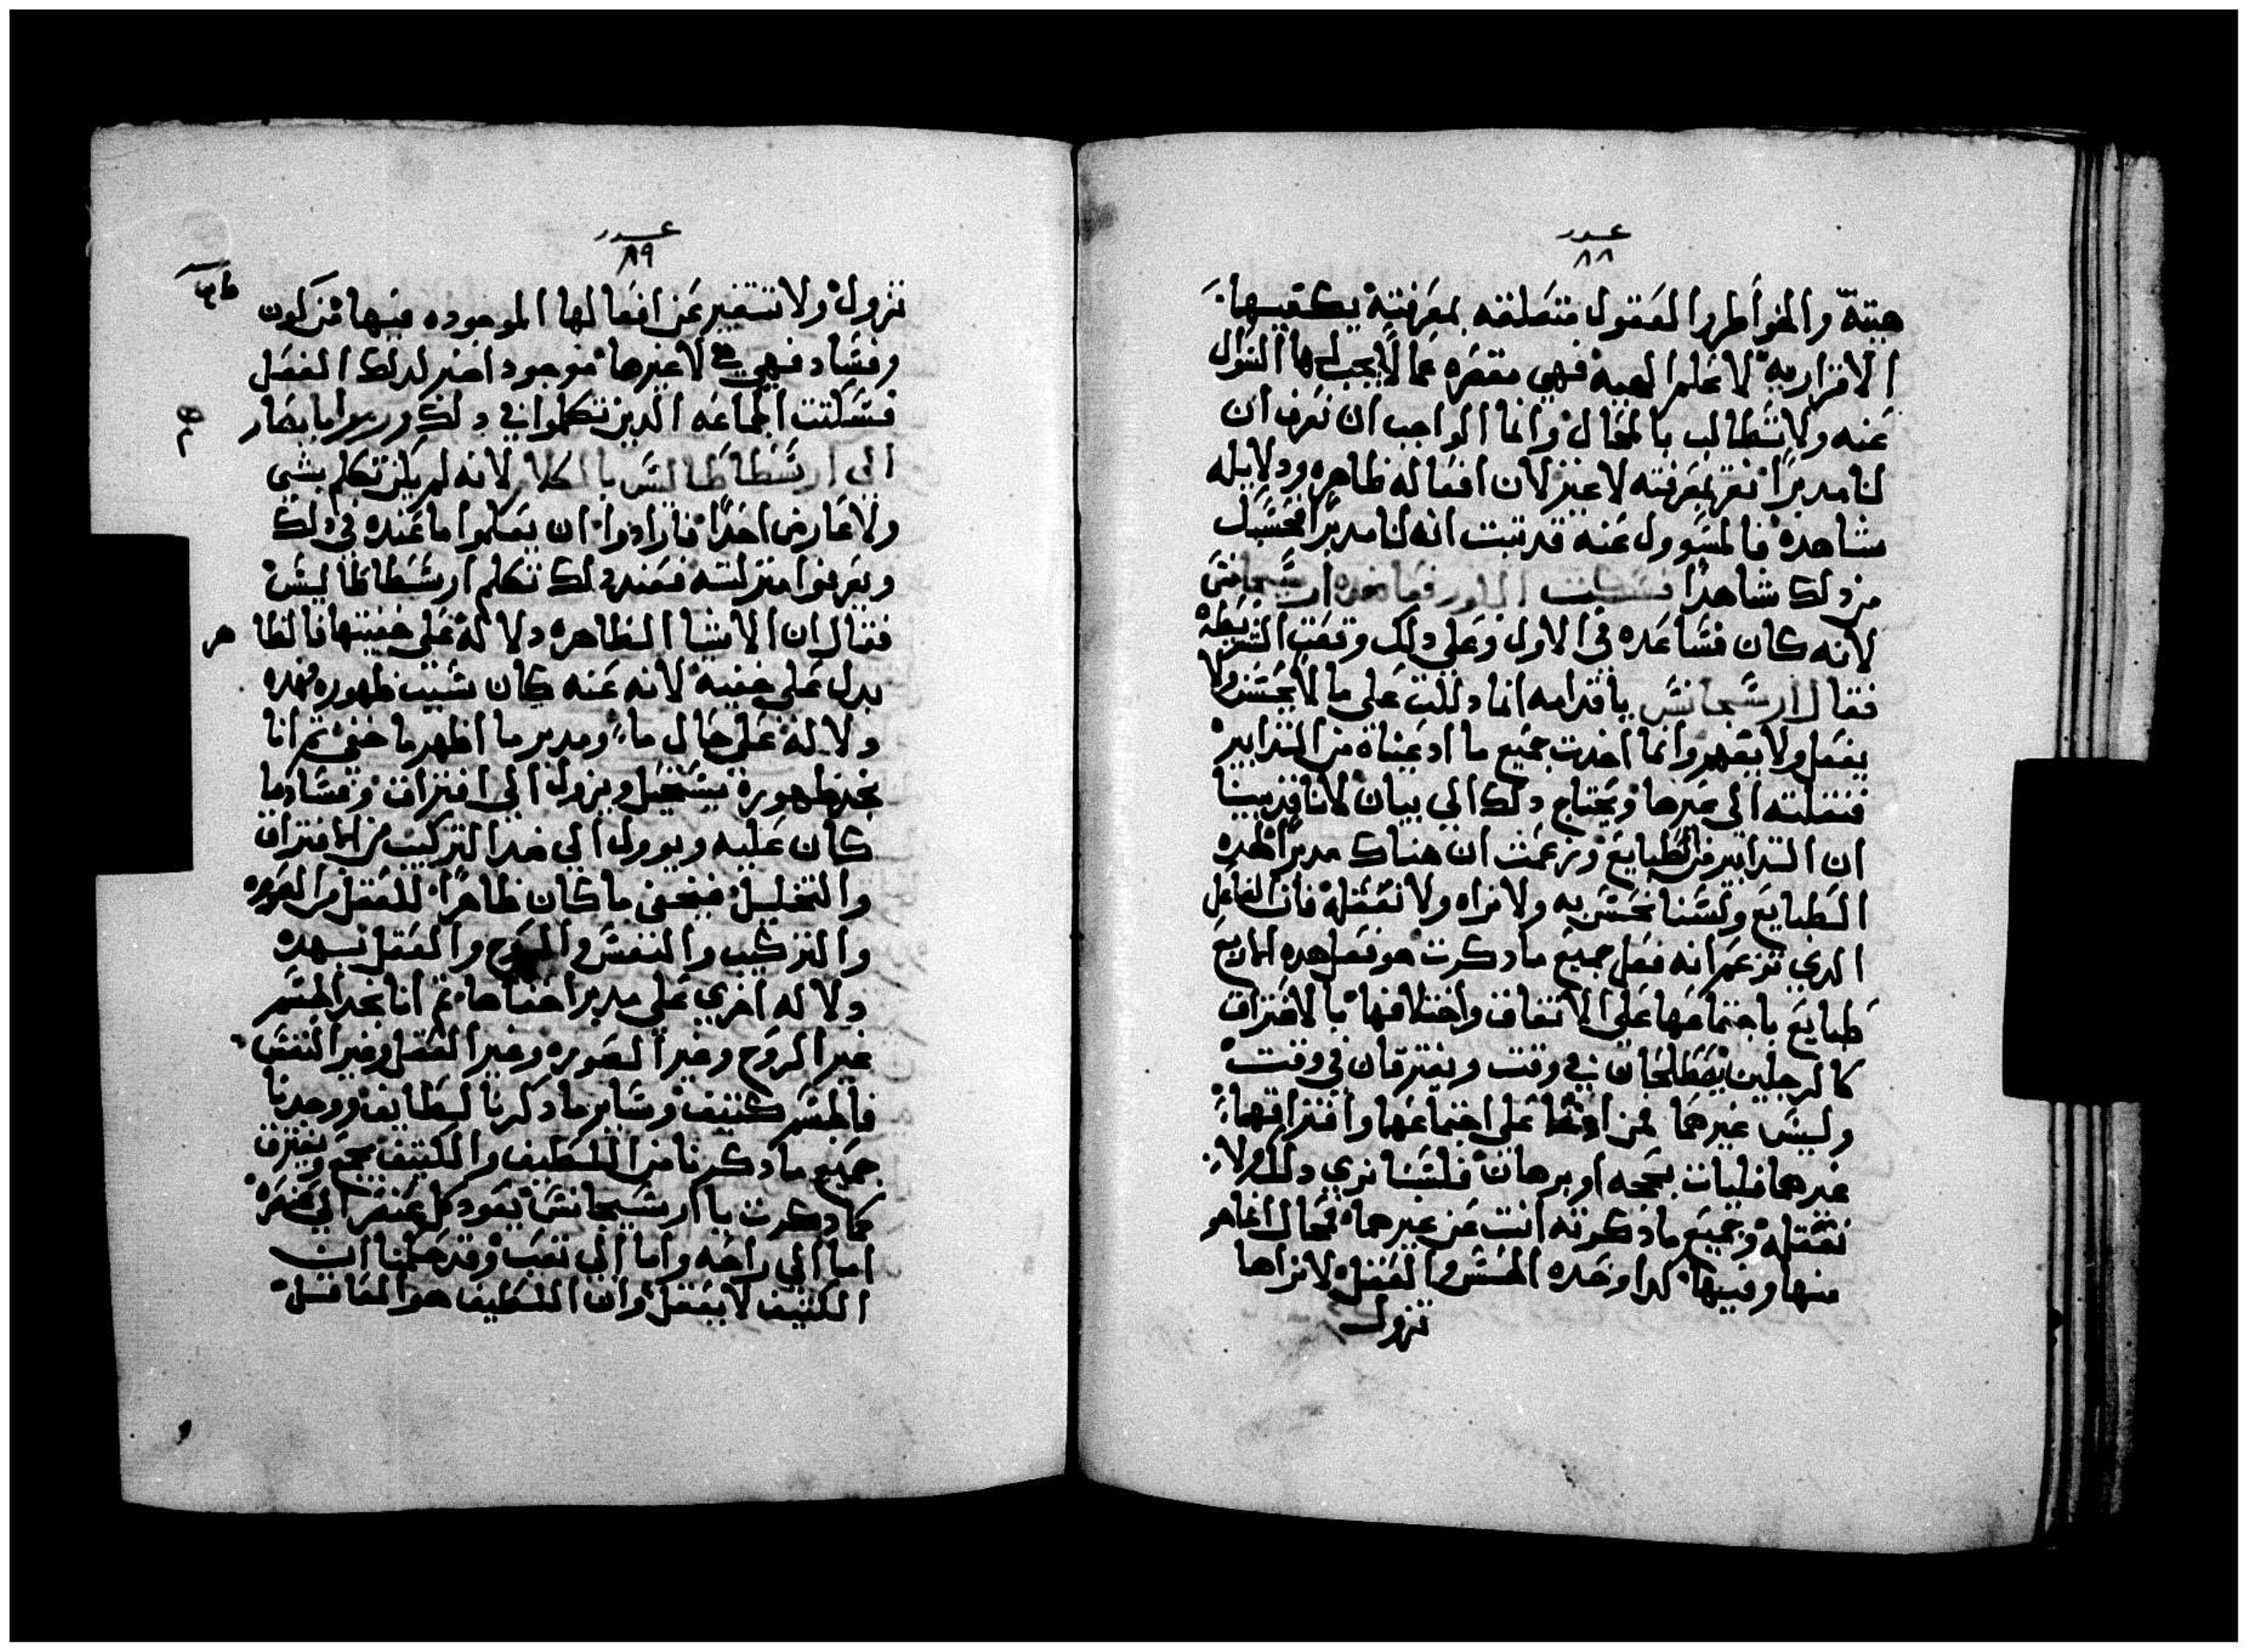 عدد
٨٨
هيته والخواطر والعقول متصلقه بمعرفته يكفيها
الاقرار به لا علم الهيه فهي مقصره عما لا يجب لها السوال
عنه ولا تطالب بالمقال وانما الواجب ان نعرف ان
لنا مدبرا نقر بمعرفته لا غير لان افعاله ظاهره ودلايله
شاهده فالمسوول عنه قد تبت انه لنا مدبرا فحسبك
من دلك شاهدا فسكت
لانه كان فساعده في الاول وعلي دلك وقعت الشريطه
فقال ارسيجانس ياقدامه انما دللت علي ما لا يحس ولا
يفعل ولا يقهر وانما اخدت جميع ما ادعيناه من التدابير
فنقلته الي غيرها ويحتاج دلك الي بيان لانا قد بينا
ان التدابير من الطبايع وزعمت ان هناك مدبرا لهده
الطبايع ولسنا نحس به ولا نراه ولا نعقله فان الفاعل
الدي تزعم انه فعل جميع ما دكرت هو فعل هده الاربع
طبايع باجتماعها علي الاتفاق واختلافها بالافتراق
كالرجلين يصطلحان في وقت ويفترقان في وقت
وليس غيرهما فمن ادعا علي اجتماعهما وافتراقهما
غيرهما فليات بحجه او برهان فلسنا نري دلك ولا
نعقله وجميع ما دكرته انت عن غيرهما فمحال انما هو
منها وفيها كدا وحده الحس والعقل لا نراها
تزول
عدد
٨٩
تزول ولا تتغير عن افعالها الموجوده فيها من كون
وفساد فهي هي لا غيرها موجود اخر لدلك الفعل
فسكتت الجماعه الدين تكلموا في دلك ورموا بابصار
الي ارسطاطاليس بالكلام لانه لم يكن تكلم بشي
ولا عارض احدا فارادوا ان يعلموا ما عنده في دلك
ويعرفوا منزلته فعند دلك تكلم ارسطاطاليس
فقال ان الاشيا الظاهره دلاله علي خفيتها فالظا هر
يدل علي خفيه لانه عنه كان سبب ظهوره فهده
دلاله علي حال ما ومدبر ما اظهر ما خفي تم انا
نجد ظهوره يستحيل ويزول الي افتراق وفساد ما
كان عليه ويوول الي ضد التركيب من الافتراق
والتحليل فيخفي ما كان ظاهرا للعقل من الصوره
والتركيب والنفس والروح والعقل فهده
دلاله اخري علي مدبر اخفاها تم انا نجد الجسم
غير الروح وغير الصوره وغير العقل وغير النفس
فالجسم كتيف وساير ما دكرنا لطايف ووجدنا
جميع ما دكرنا من اللطيف والكتيف يجمع ويفترق
كما دكرت يا ارسيجانس يعود كل عنصر الي عنصره
اما الي راحه واما الي تعب وقد علمنا ان
الكتيف لا يعقل وان اللطيف هو العاقل